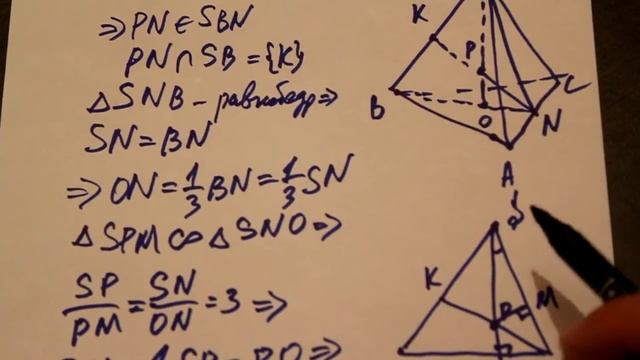 ⇒ PN ∈ SBN
PN ∩ SB = {K}
△SNB – равнобедр ⇒
SN = BN
⇒ ON = 1/3 BN = 1/3 SN
△SPM ∾ △SNO ⇒
SP/PM = SN/ON = 3 ⇒
K
P
B
O
C
N
A
S
K
P
M